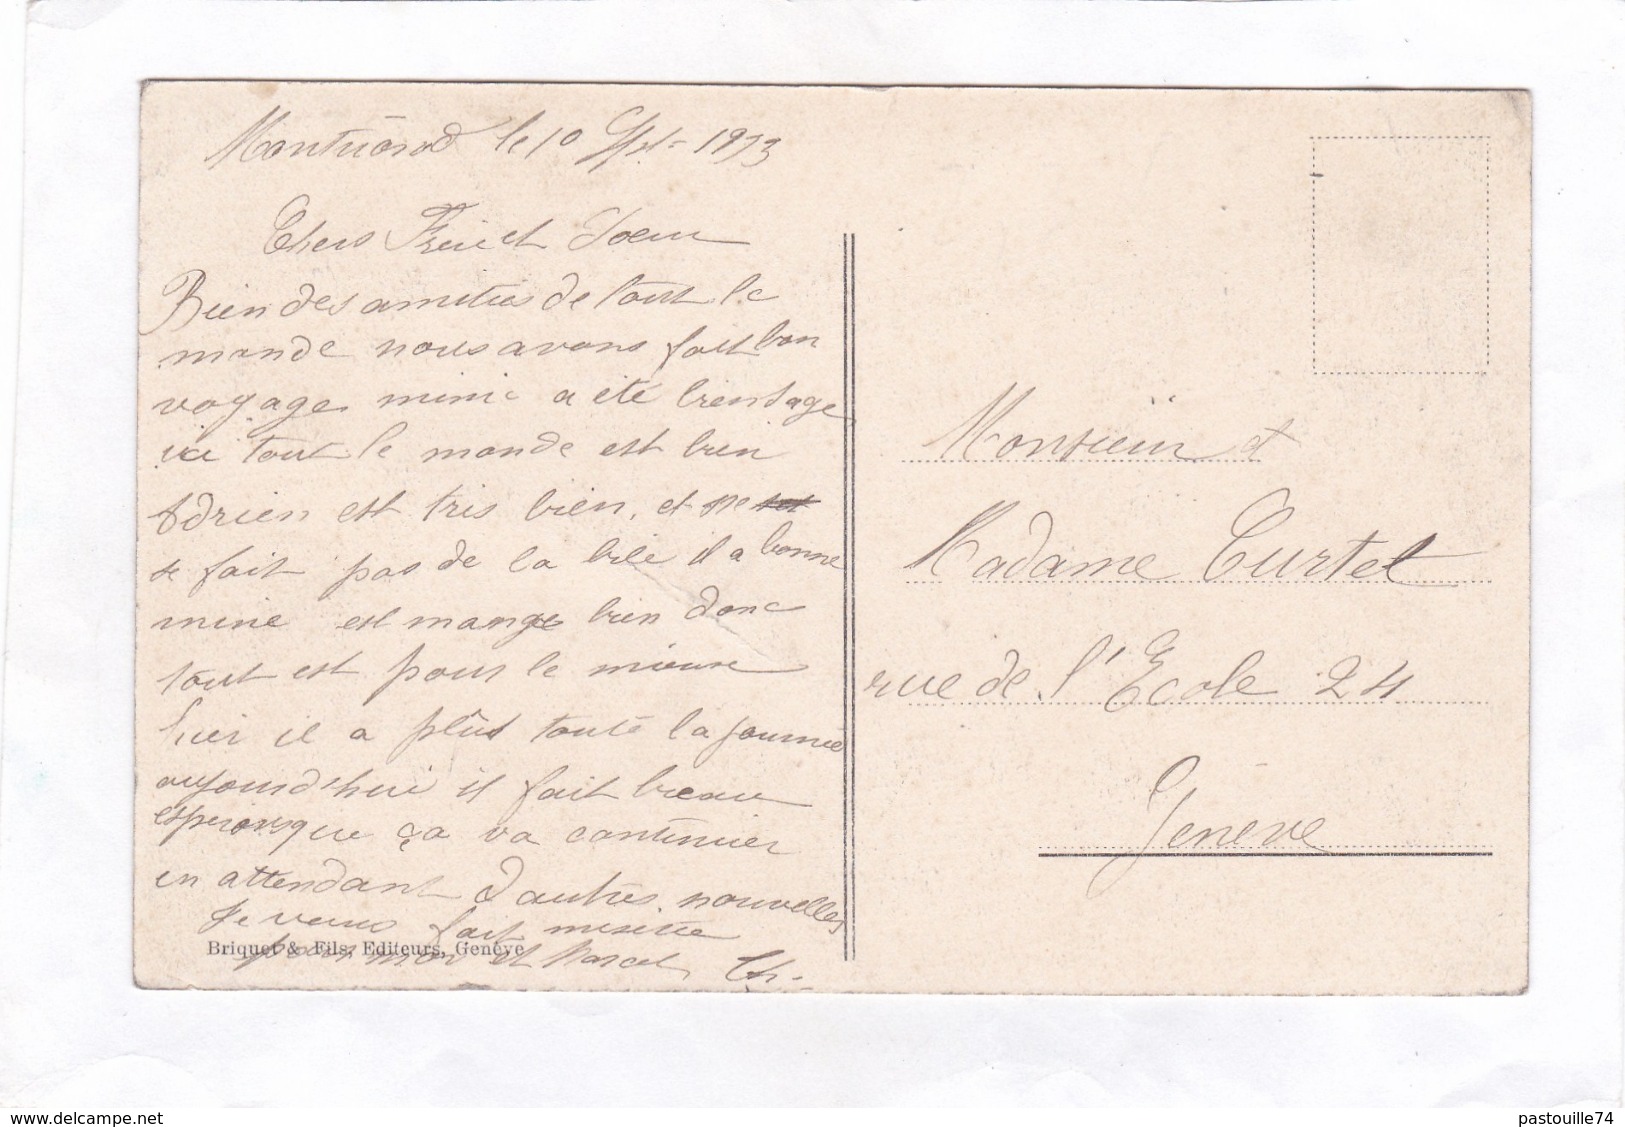 le 10 Sept. 1913
Chers Frère et Soeur
Bien des amitiés de tout le
monde nous avons fait bon
voyage mimie a été bien sage
ici tout le monde est bien
Adrien est très bien, et ne
se fait pas de la bile il a bonne
mine est mange bien donc
tout est pour le mieux
hier il a plût toute la journée
aujourd'hui il fait beau
esperons que ça va continuer
en attendant d'autres nouvelles
Je vous fait
pour moi et Marcel Ch.
Briquet & Fils, Editeurs, Genève
Monsieur et
Madame Curtet
rue de l'Ecole 24
Genève
pastouille74
www.delcampe.net